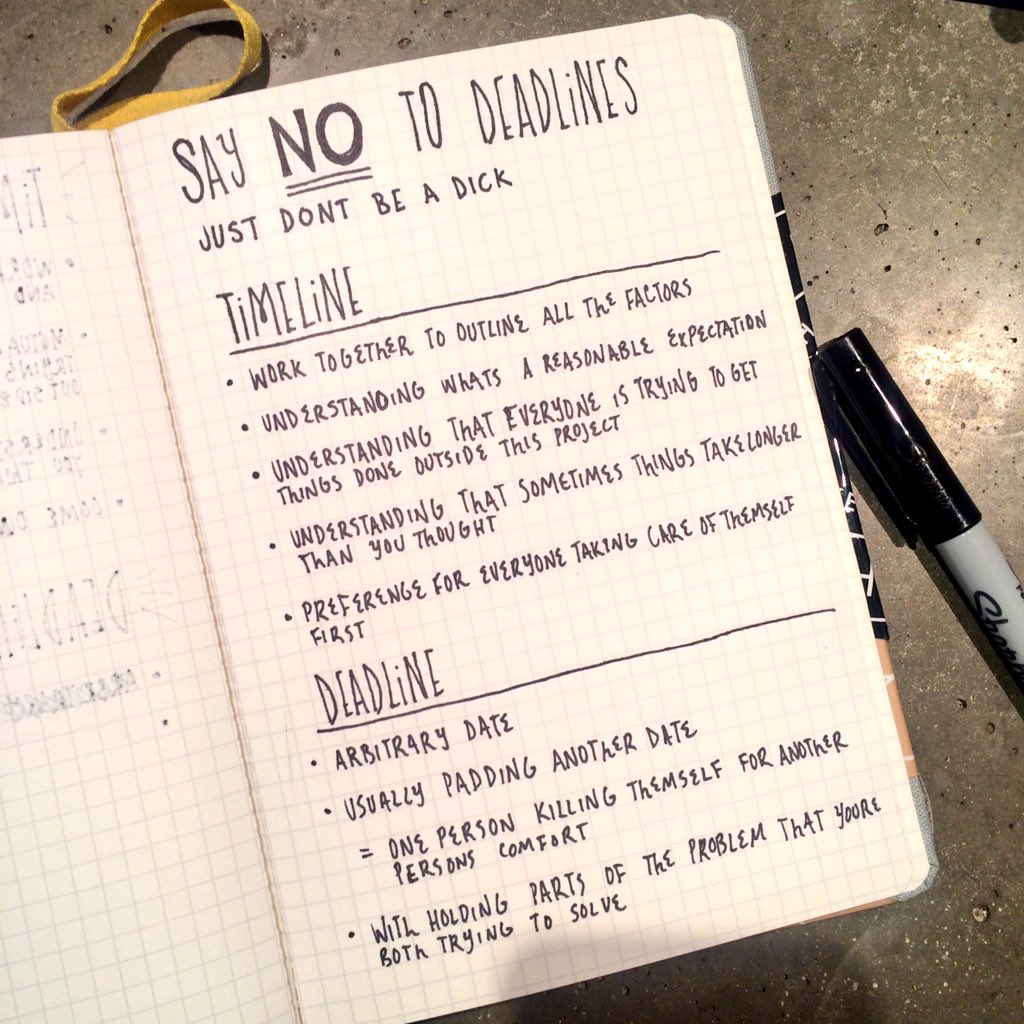 SAY NO TO DEADLINES
JUST DONT BE A DICK
TIMELINE
• WORK TOGETHER TO OUTLINE ALL THE FACTORS
• UNDERSTANDING WHATS A REASONABLE EXPECTATION
• UNDERSTANDING THAT EVERYONE IS TRYING TO GET
THINGS DONE OUTSIDE THIS PROJECT
• UNDERSTANDING THAT SOMETIMES THINGS TAKE LONGER
THAN YOU THOUGHT
• PREFERENCE FOR EVERYONE TAKING CARE OF THEMSELF
FIRST
DEADLINE
• ARBITRARY DATE
• USUALLY PADDING ANOTHER DATE
= ONE PERSON KILLING THEMSELF FOR ANOTHER
PERSONS COMFORT
• WITH HOLDING PARTS OF THE PROBLEM THAT YOURE
BOTH TRYING TO SOLVE